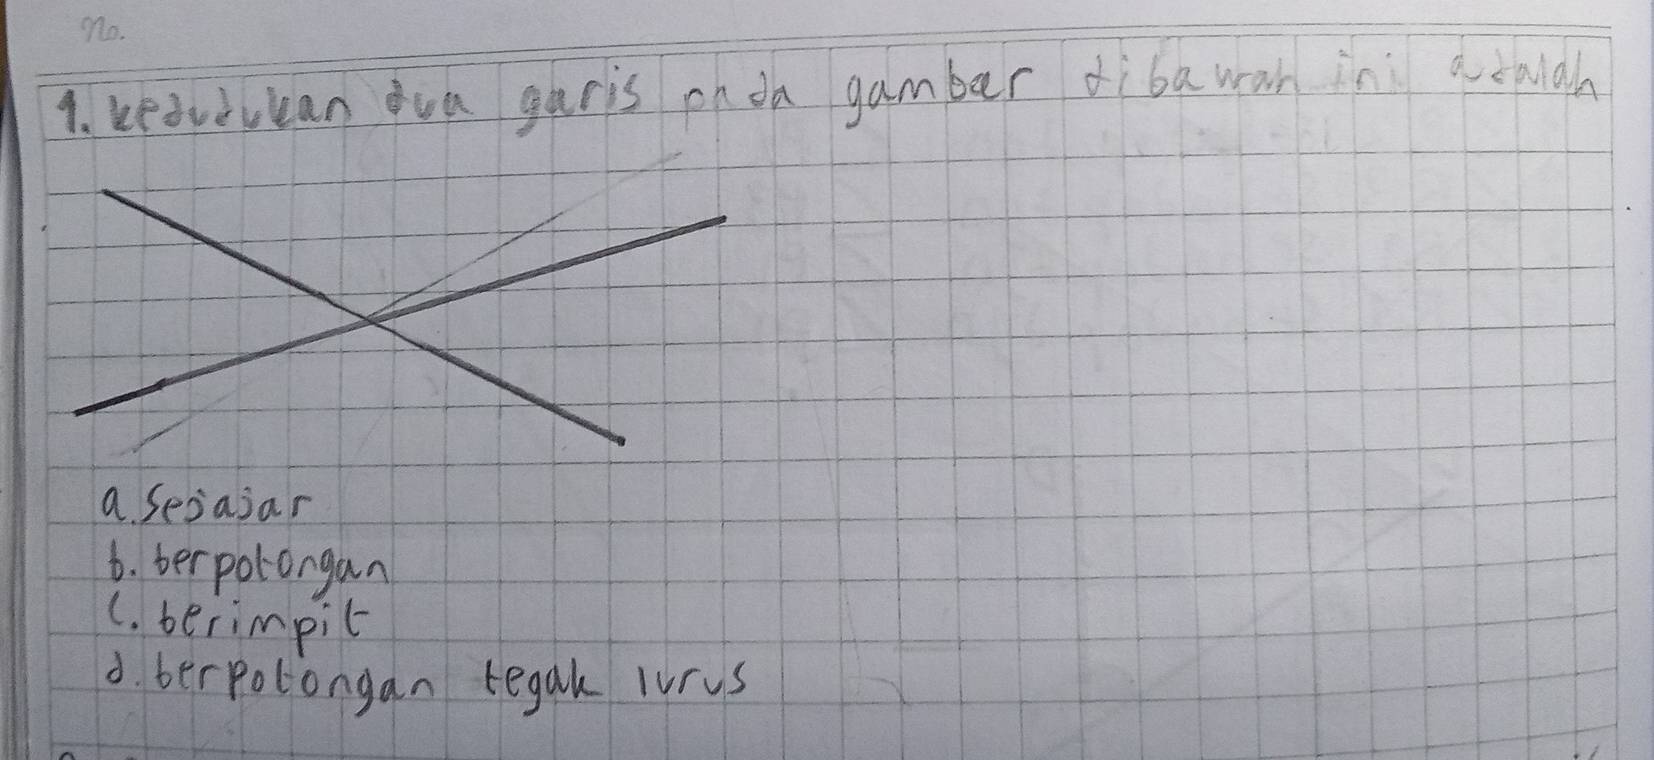 No.
1. kedudukan dua garis pada gambar dibawah ini adalah
a. Sejajar
b. berpotongan
c. berimpit
d. berpotongan tegak lurus